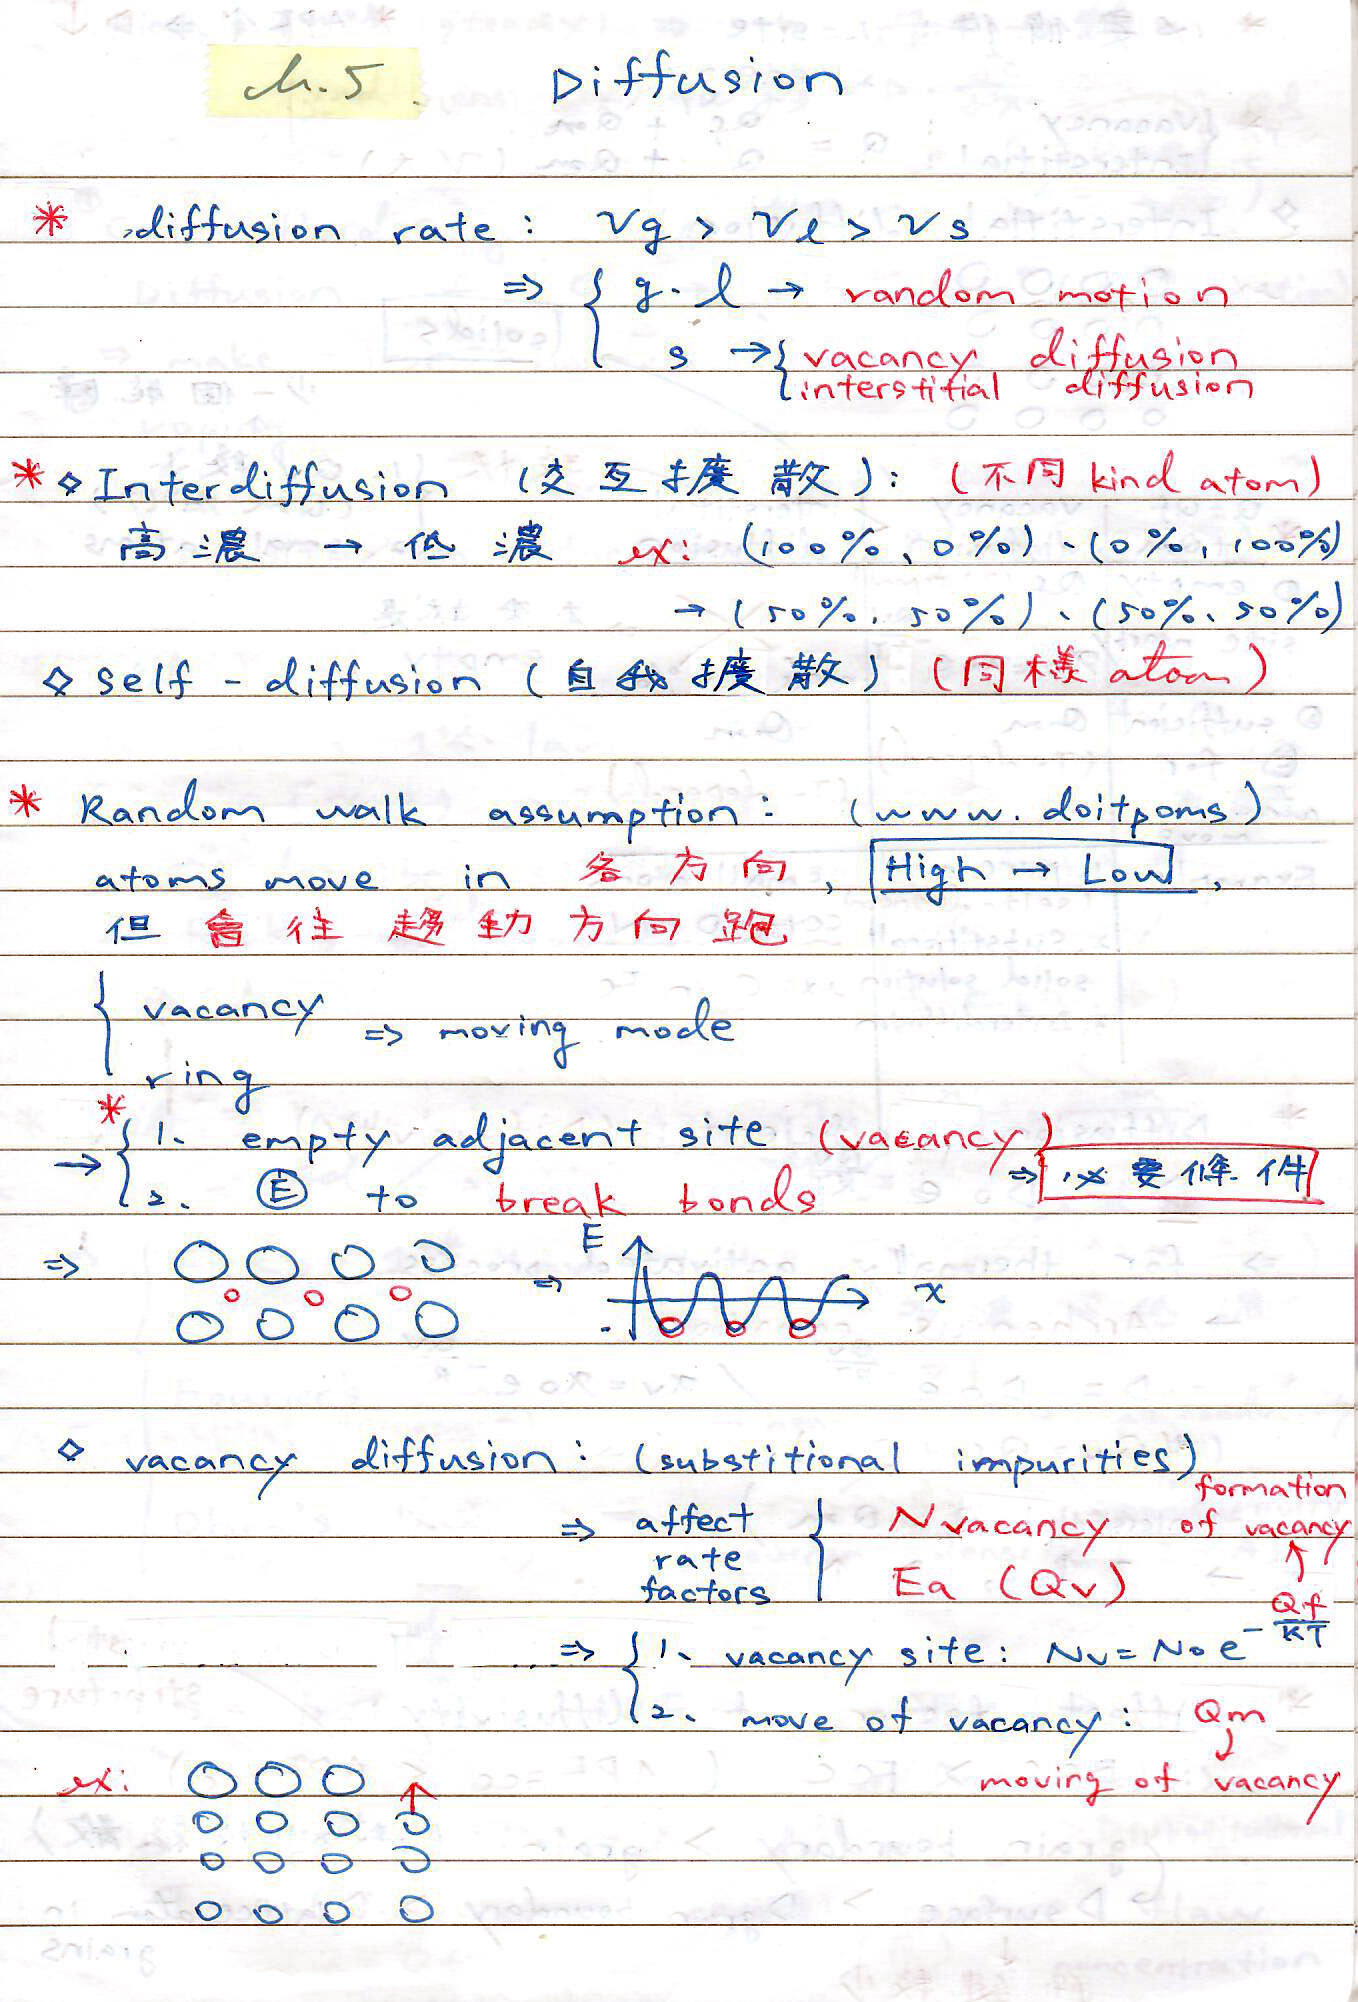 ch.5 Diffusion
* diffusion rate: Vg > Vl > Vs
⇒ { g.l → random motion
s → { vacancy diffusion
interstitial diffusion
* ◇ Interdiffusion (交互擴散): (不同 kind atom)
高濃 → 低濃 ex: (100%、0%)、(0%、100%)
→ (50%、50%)、(50%、50%)
◇ self-diffusion (自我擴散) (同樣 atom)
* Random walk assumption: (www.doitpoms)
atoms move in 各方向, High → Low,
但會往趨動方向跑
{ vacancy
⇒ moving mode
ring
* → { 1、 empty adjacent site (vacancy)
2、 Ⓔ to break bonds ⇒ 必要條件
⇒ ⇒ E x
◇ vacancy diffusion: (substitional impurities)
⇒ affect rate factors { N vacancy
Ea (Qv)
formation of vacancy
↑
⇒ { 1、 vacancy site: Nv = No e^-Qf/KT
2、 move of vacancy: Qm
↓
moving of vacancy
ex: